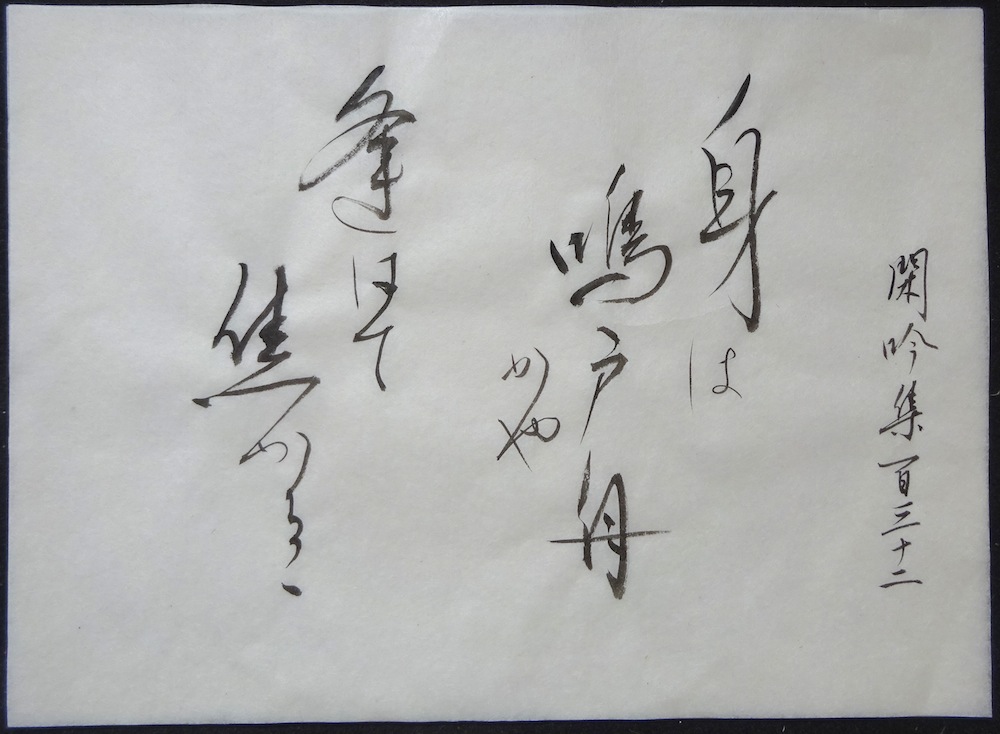 閑吟集百三十二
身は
鳴戸舟
かや
逢はて
焦かるゝ